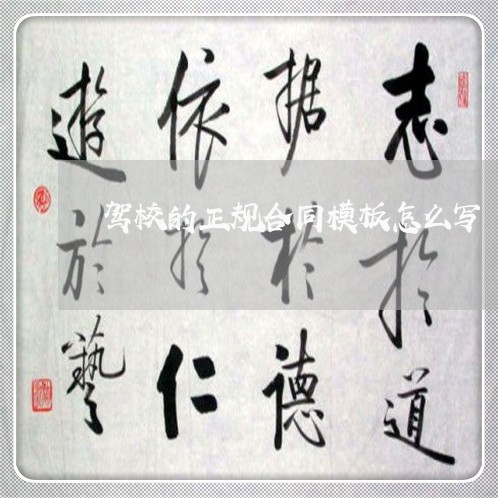 志於道
据於德
依於仁
遊於藝
驾校的正规合同模板怎么写